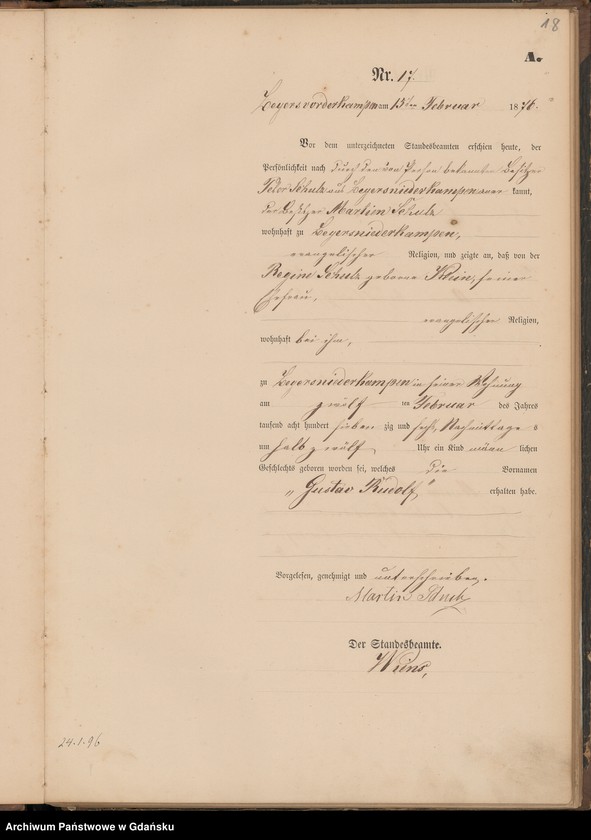 18
A.
Nr. 17.
Zeyersvorderkampen am 15ten Februar 1876.
Vor dem unterzeichneten Standesbeamten erschien heute, der
Persönlichkeit nach durch den von Person bekannten Besitzer
Peter Schulz aus Zeyersniederkampen kannt,
der Besitzer Martien Schulz
wohnhaft zu Zeyersniederkampen,
evangelischer Religion, und zeigte an, daß von der
Regine Schulz geborene Klein, seiner
Ehefrau,
evangelischer Religion,
wohnhaft bei ihm,
zu Zeyersniederkampen in seiner Wohnung
am zwölf ten Februar des Jahres
tausend acht hundert sieben zig und sechs, Nachmittags
um halb zwölf Uhr ein Kind männ lichen
Geschlechts geboren worden sei, welches die Vornamen
„Gustav Rudolf" erhalten habe.
Vorgelesen, genehmigt und unterschrieben.
Martin Schulz
Der Standesbeamte.
Wiens,
24.1.96
Archiwum Państwowe w Gdańsku